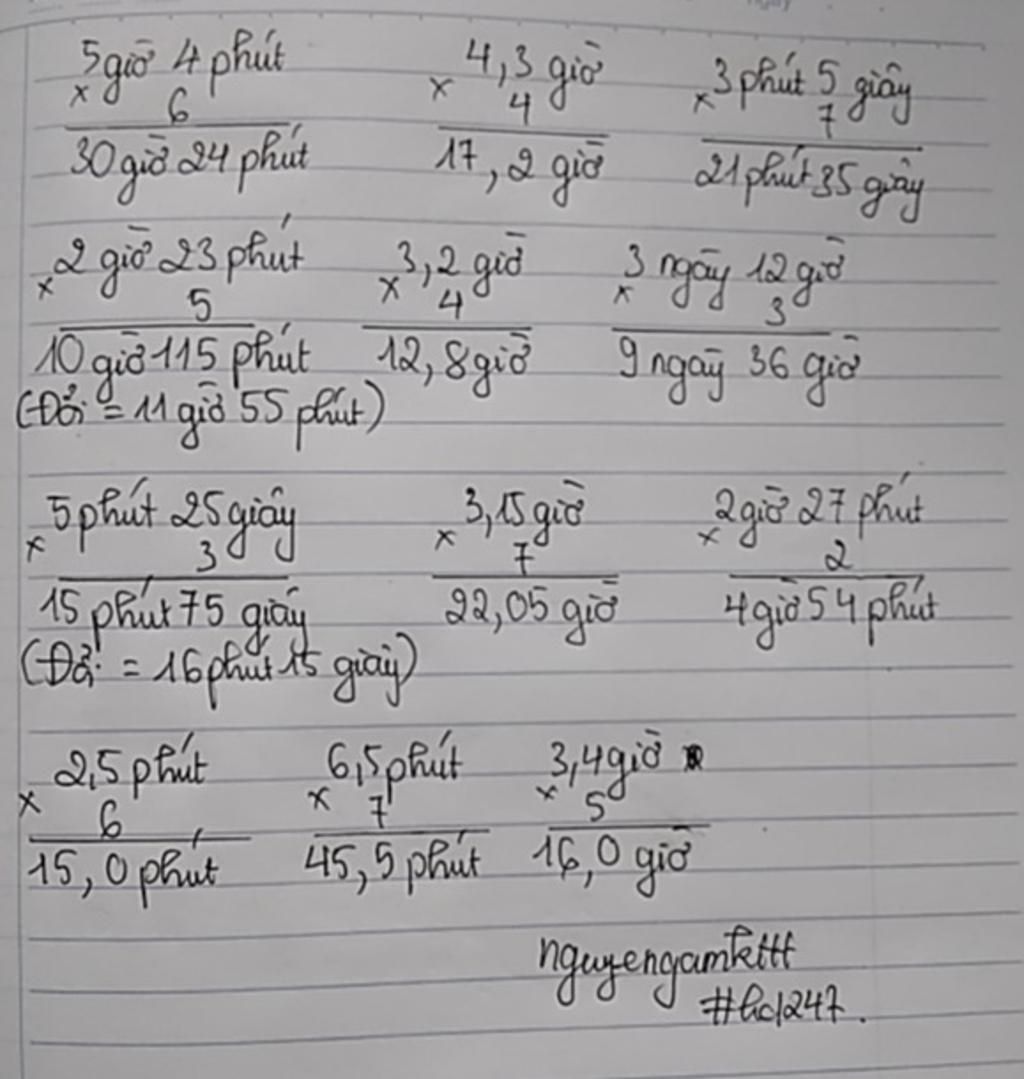 5 giờ 4 phút 4,3 giờ 3 phút 5 giây
x 6 x 4 x 7
30 giờ 24 phút 17,2 giờ 21 phút 35 giây
2 giờ 23 phút 3,2 giờ 3 ngày 12 giờ
x 5 x 4 x 3
10 giờ 115 phút 12,8 giờ 9 ngày 36 giờ
(Đổi = 11 giờ 55 phút)
5 phút 25 giây 3,15 giờ 2 giờ 27 phút
x 3 x 7 x 2
15 phút 75 giây 22,05 giờ 4 giờ 54 phút
(Đổi = 16 phút 15 giây)
2,5 phút 6,5 phút 3,4 giờ
x 6 x 7 x 5
15,0 phút 45,5 phút 16,0 giờ
nguyengamkttt
#hd247.